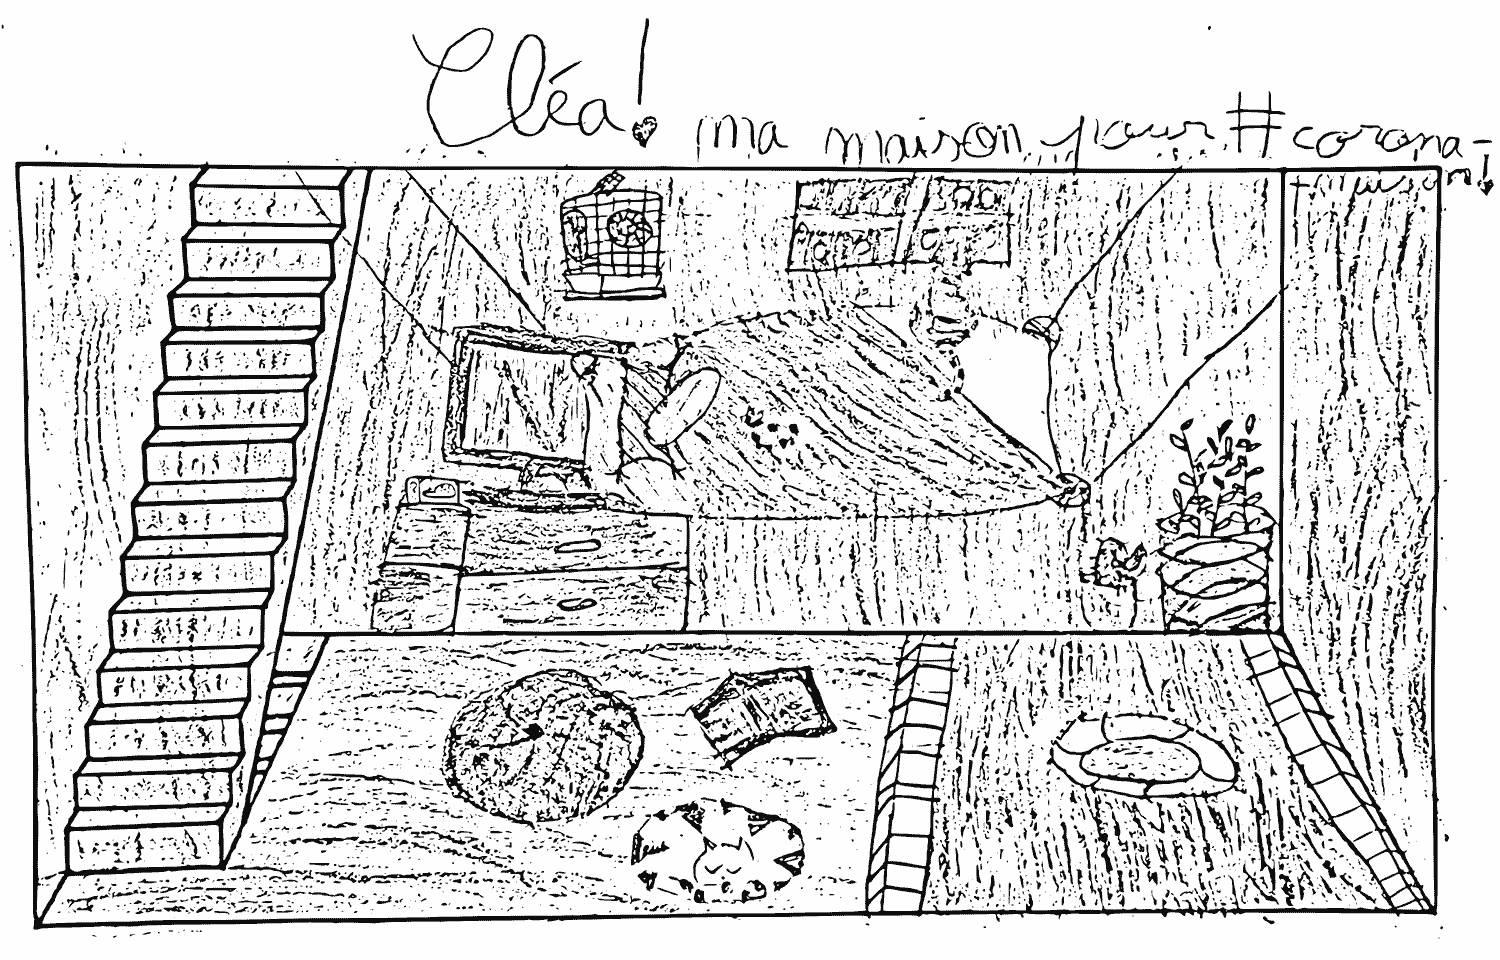 Cléa! ma maison pour #corona-
maison!